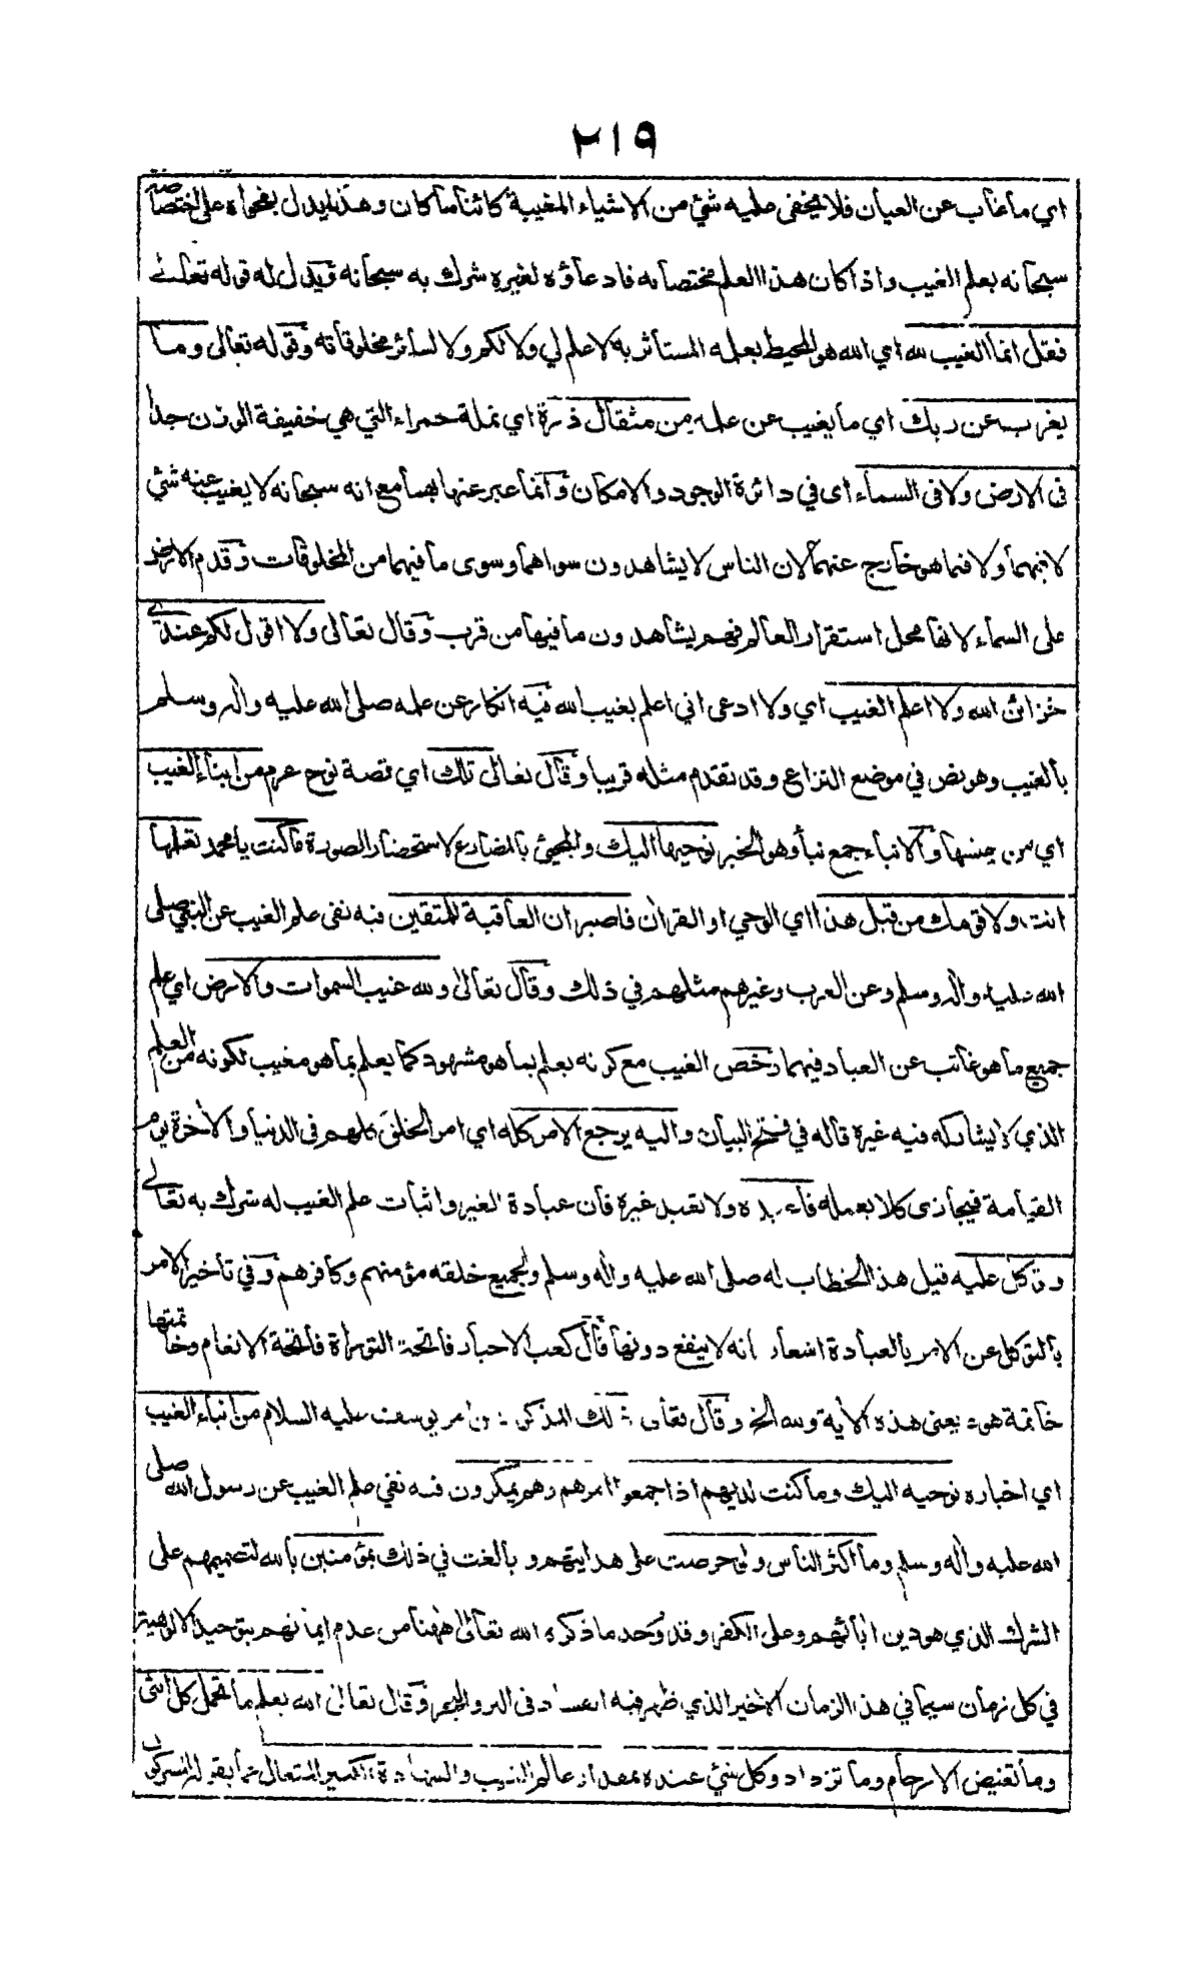 ٢١٩
اي ما غاب عن العيان فلا يخفى عليه شئ من الاشياء المغيبة كائنا ما كان وهذا يدل بفحواه على اختصاصه
سبحانه بعلم الغيب واذا كان هذا العلم مختصا به فادعاؤه لغيره شرك به سبحانه ويدل له قوله تعالى
فقل انما الغيب لله اي الله هو المحيط بعلمه المستأثر به لا علم لي ولا لكم ولا لسائر مخلوقاته وقوله تعالى وما
يعزب عن ربك اي ما يغيب عن علمه من مثقال ذرة اي نملة حمراء التي هي خفيفة الوزن جدا
فى الارض ولا فى السماء اى في دائرة الوجود والامكان وانما عبر عنها بهما مع انه سبحانه لا يغيب عنه شئ
لا فيهما ولا فيما هو خارج عنهما لان الناس لا يشاهدون سواهما وسوى ما فيهما من المخلوقات وقدم الارض
على السماء لانها محل استقرار العالم فهم يشاهدون ما فيها من قرب وقال تعالى ولا اقول لكم عندي
خزائن الله ولا اعلم الغيب اي ولا ادعى اني اعلم بغيب الله فيه انكار عن علمه صلى الله عليه واله وسلم
بالغيب وهو نص في موضع النزاع وقد تقدم مثله قريبا وقال تعالى تلك اي قصة نوح عرم من انباء الغيب
اي من جنسها والانباء جمع نبأ وهو الخبر نوحيها اليك والمجيئ بالمضارع لاستحضار الصورة ما كنت يا محمد تعلمها
انت ولا قومك من قبل هذا اي الوحي او القران فاصبر ان العاقبة للمتقين فيه نفى علم الغيب عن النبي صلى
الله عليه واله وسلم وعن العرب وغيرهم مثلهم في ذلك وقال تعالى ولله غيب السموات والارض اي علم
جميع ما هو غائب عن العباد فيهما وخص الغيب مع كونه يعلم بما هو مشهود كما يعلم بما هو مغيب لكونه من العلم
الذي لا يشاركه فيه غيره قاله في فتح البيان واليه يرجع الامر كله اي امر الخلق كلهم فى الدنيا والاخرة يوم
القيامة فيجازى كلا بعمله فاعبده ولا تعبد غيره فان عبادة الغير واثبات علم الغيب له شرك به تعالى
وتوكل عليه قيل هذا الخطاب له صلى الله عليه واله وسلم ولجميع خلقه مؤمنهم وكافرهم وفي تأخير الامر
بالتوكل عن الامر بالعبادة اشعار انه لا ينفع دونها قال كعب الاحبار فاتحة التوراة فاتحة الانعام وخاتمتها
خاتمة هود يعنى هذه الاية ولله الخ وقال تعالى ذلك المذكور من امر يوسف عليه السلام من انباء الغيب
اي اخباره نوحيه اليك وما كنت لديهم اذ اجمعوا امرهم وهم يمكرون فيه نفي علم الغيب عن رسول الله صلى
الله عليه واله وسلم وما اكثر الناس ولو حرصت على هدايتهم وبالغت في ذلك بمؤمنين بالله لتصميمهم على
الشرك الذي هو دين ابائهم وعلى الكفر وقد وجد ما ذكره الله تعالى ههنا من عدم ايمانهم بتوحيد الالوهية
في كل زمان سيما في هذا الزمان الاخير الذي ظهر فيه الفساد فى البر والبحر وقال تعالى الله يعلم ما تحمل كل انثى
وما تغيض الارحام وما تزداد وكل شئ عنده بمقدار عالم الغيب والشهادة الكبير المتعال عما يقوله المشركون